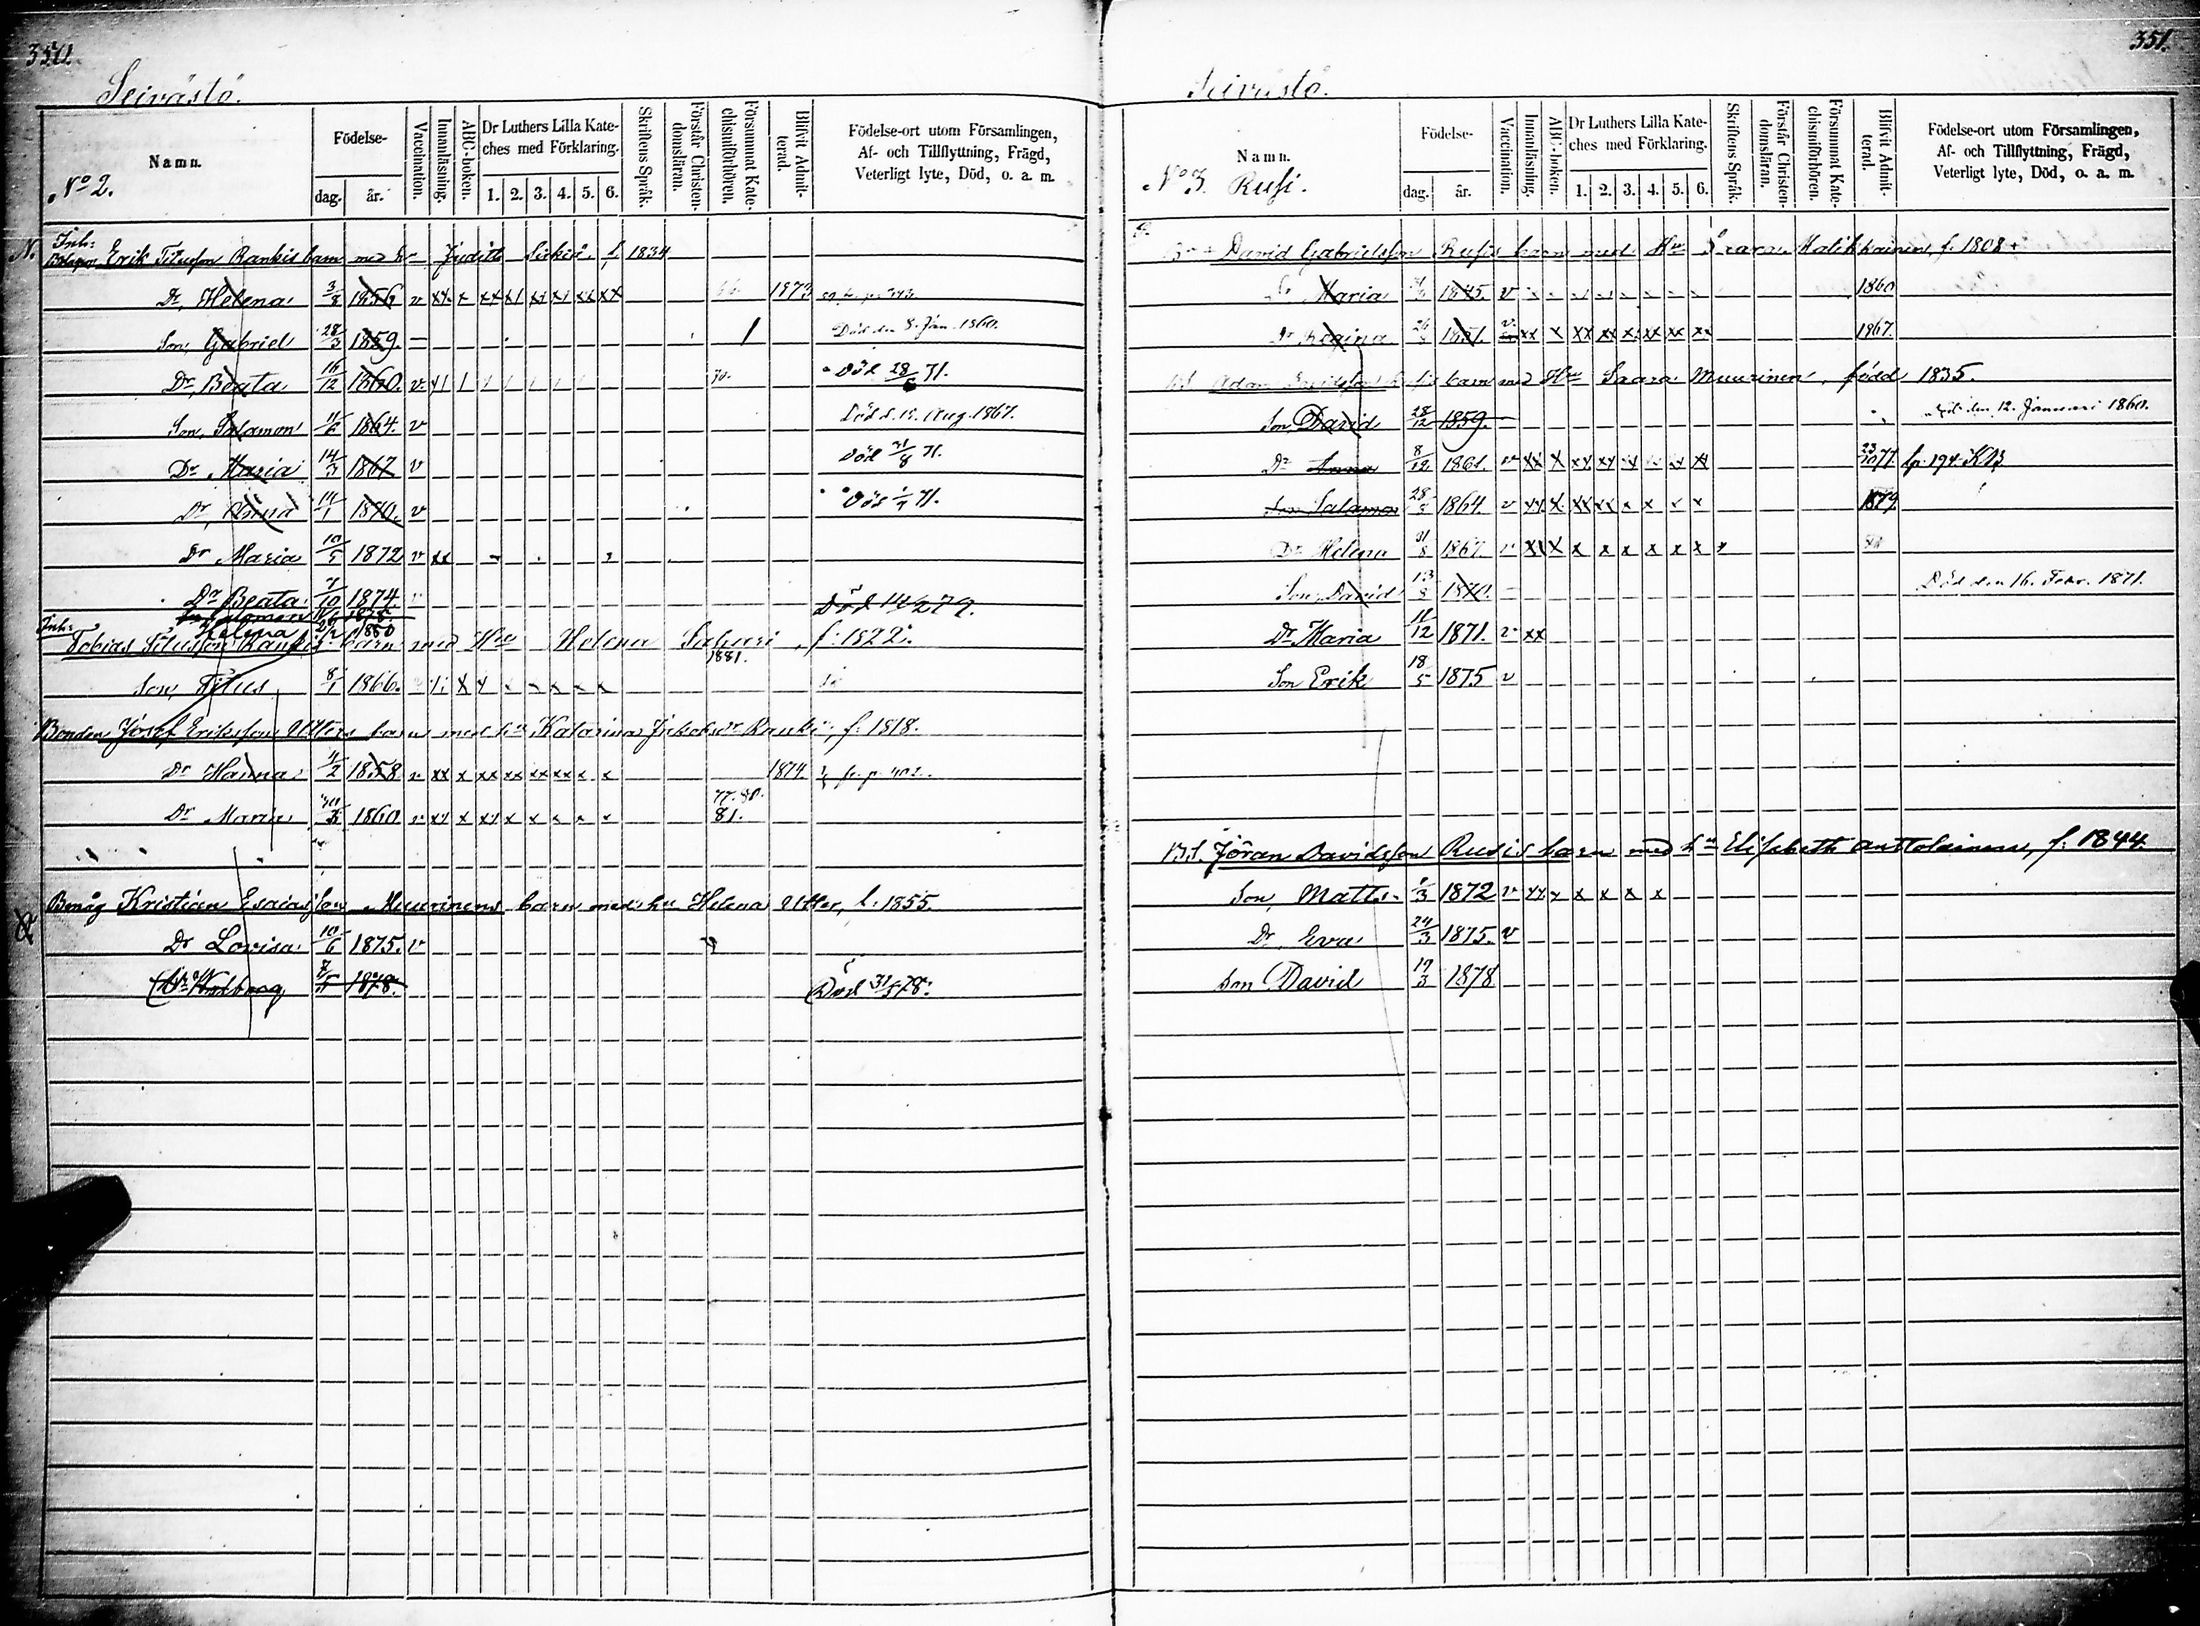 350.
Seivästö.
Namn.
No 2.
Födelse-
dag.
år.
Vaccination.
Innanläsning.
ABC-boken.
Dr Luthers Lilla Kate-
ches med Förklaring.
1. 2. 3. 4. 5. 6.
Skriftens Språk.
Förstår Christen-
domsläran.
Försummat Kate-
chismiförhören.
Blifvit Admit-
terad.
Födelse-ort utom Församlingen,
Af- och Tillflyttning, Frägd,
Veterligt lyte, Död, o. a. m.
N. Inh: Erik Titusson Rankis barn med hu Judith f. 1834
Dr, Helena 3/8 1856 v xx x xx x1 xx x1 xx xx 1873
Son, Gabriel 28/3 1859. — 1 Död den 8. Jan. 1860.
Dr, Beata 16/12 1860. v x1 1 70. Död 28/6 71.
Son, Salamon 11/6 1864. v Död d. 15. Aug. 1867.
Dr Maria 14/3 1867 v Död 31/8 71.
Dr, Anna 14/1 1870. v Död 1/7 71.
Dr Maria 10/5 1872 v xx
Dr Beata 7/10 1874.
Salomon 1878 Död 14/2 79.
Helena 2/2 1880
Inh: Tobias Titusson Rankis barn med Hu Helena f. 1822.
1881.
Son, Titus 8/1 1866. x x x x x x
Bonden Josef Eriksson Utters barn med hu Katarina Jakobsdr Ranki, f. 1818.
Dr Hanna 4/2 1858 v xx x xx xx xx xx x x 1874. fr. p. 402.
77. 80.
Dr Maria 30/3 1860 v xx x xx x x x x x 81.
Bmåg Kristian Esaiasson Muurinens barn med hu Helena Utter, f. 1855.
Dr Lovisa 10/6 1875. v
(Dr Walborg 7/5 1878. Död 31/5 78.
351.
Seivästö.
Namn.
No 3. Rusi.
Födelse-
dag.
år.
Vaccination.
Innanläsning.
ABC-boken.
Dr Luthers Lilla Kate-
ches med Förklaring.
1. 2. 3. 4. 5. 6.
Skriftens Språk.
Förstår Christen-
domsläran.
Försummat Kate-
chismiförhören.
Blifvit Admit-
terad.
Födelse-ort utom Församlingen,
Af- och Tillflyttning, Frägd,
Veterligt lyte, Död, o. a. m.
David Gabrielsson Rusis barn med Hu Saara f. 1808 +
Maria 1845. v 1860
Dr Regina 1851. v. xx x xx xx x xx xx x 1867.
Adam Davidsson barn med Hu Saara Muurinen, född 1835.
Son, David 28/12 1859. — Död den 12. Januari 1860.
Dr Anna 8/12 1861. v xx x xx xx x xx 23/10 77. fr. 194. KB
Son Salamon 28/5 1864. v xx x xx xx x x x x 1879.
Dr Helena 31/8 1867. v xx x x x x x x x x
Son, David 13/8 1870. — Död den 16. Febr. 1871.
Dr Maria 11/12 1871. v xx
Son Erik 18/5 1875 v
BS. Jöran Davidsson Rusis barn med hu Elisabeth Anttolainen, f. 1844
Son, Matts 1/3 1872 v xx x x x x x
Dr. Eva 24/3 1875. v
Son David 17/3 1878